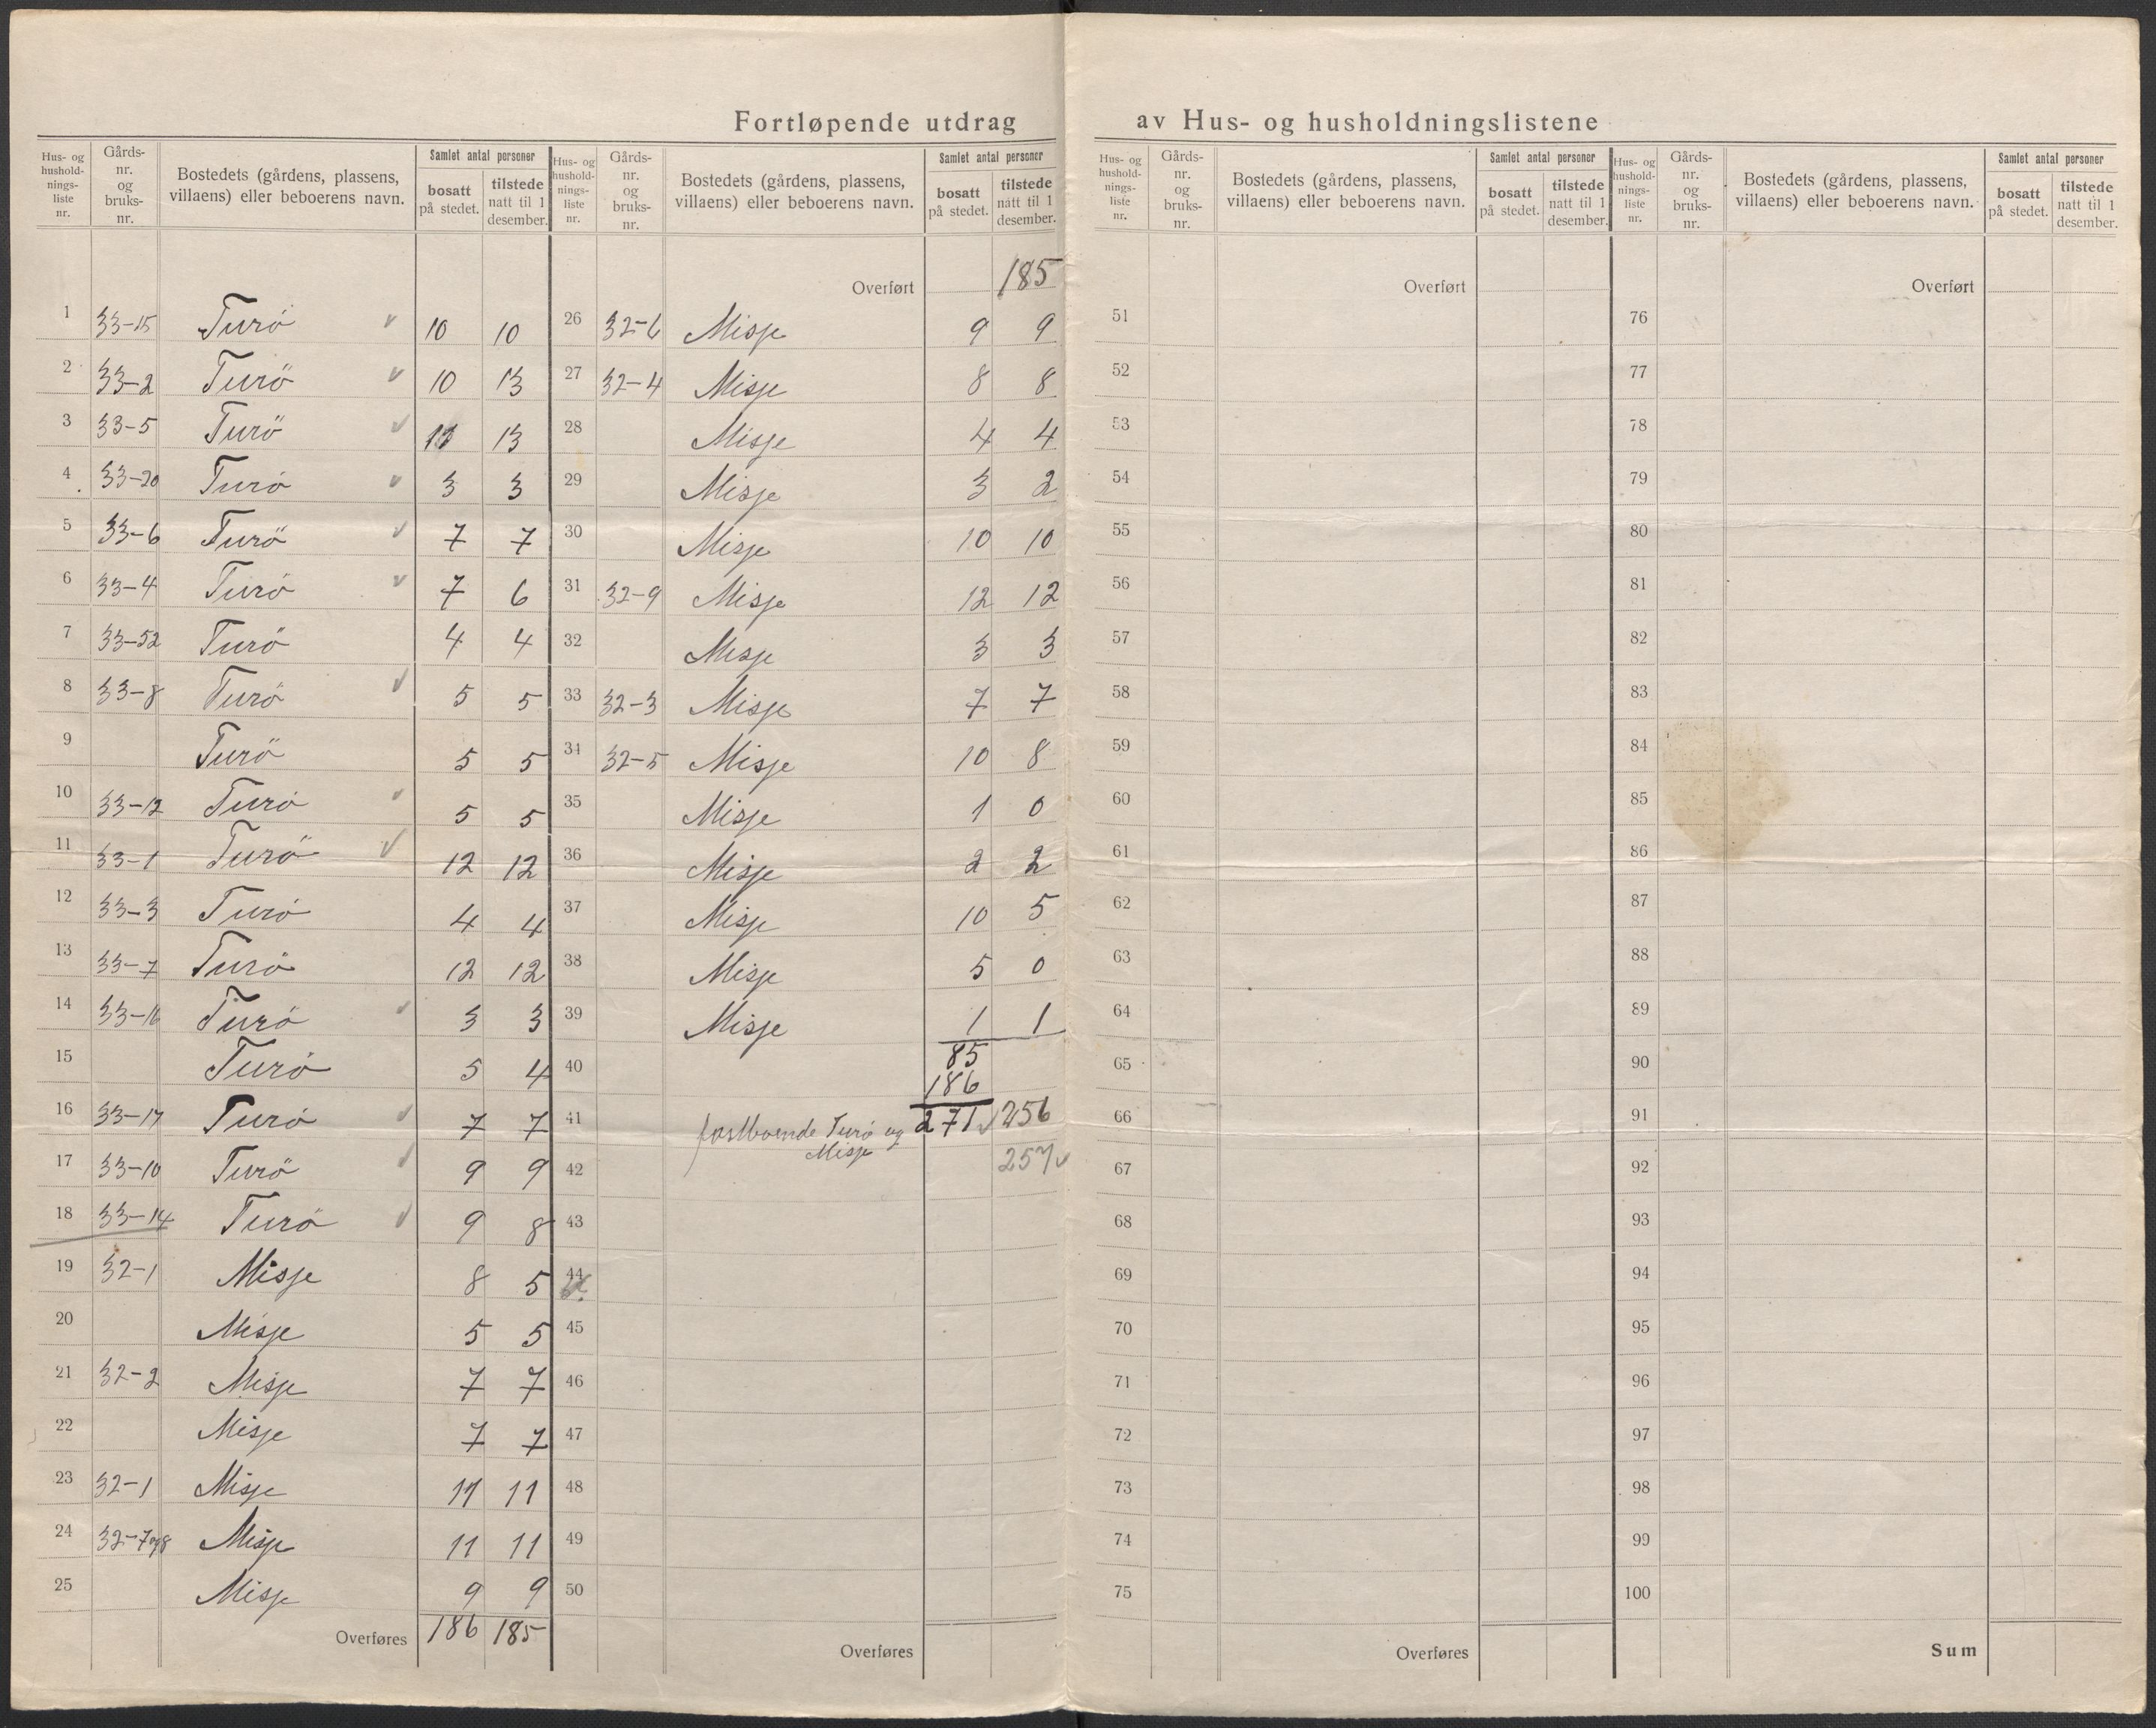 Fortløpende utdrag av Hus- og husholdningslistene
Hus- og hushold-nings-liste nr. Gårds-nr. og bruks-nr. Bostedets (gårdens, plassens, villaens) eller beboerens navn. Samlet antal personer bosatt på stedet. tilstede natt til 1 desember.
1 33-15 Turö v 10 10
2 33-2 Turö v 10 13
3 33-5 Turö v 13 13
4 33-20 Turö v 3 3
5 33-6 Turö v 7 7
6 33-4 Turö v 7 6
7 33-52 Turö 4 4
8 33-8 Turö v 5 5
9 Turö 5 5
10 33-12 Turö v 5 5
11 33-1 Turö v 12 12
12 33-3 Turö 4 4
13 33-7 Turö 12 12
14 33-16 Turö v 3 3
15 Turö 5 4
16 33-17 Turö v 7 7
17 33-10 Turö v 9 9
18 33-14 Turö v 9 8
19 32-1 Misje 8 5
20 Misje 5 5
21 32-2 Misje 7 7
22 Misje 7 7
23 32-1 Misje 11 11
24 32-7og8 Misje 11 11
25 Misje 9 9
Overføres 186 185
Hus- og hushold-nings-liste nr. Gårds-nr. og bruks-nr. Bostedets (gårdens, plassens, villaens) eller beboerens navn. Samlet antal personer bosatt på stedet. tilstede natt til 1 desember.
Overført 185
26 32-6 Misje 9 9
27 32-4 Misje 8 8
28 Misje 4 4
29 Misje 3 2
30 Misje 10 10
31 32-9 Misje 12 12
32 Misje 3 3
33 32-3 Misje 7 7
34 32-5 Misje 10 8
35 Misje 1 0
36 Misje 2 2
37 Misje 10 5
38 Misje 5 0
39 Misje 1 1
85
40 186
41 fastboende Turö og 271 v 256
Misje
42 257 v
43
44
45
46
47
48
49
50
Overføres
Hus- og hushold-nings-liste nr. Gårds-nr. og bruks-nr. Bostedets (gårdens, plassens, villaens) eller beboerens navn. Samlet antal personer bosatt på stedet. tilstede natt til 1 desember.
Overført
51
52
53
54
55
56
57
58
59
60
61
62
63
64
65
66
67
68
69
70
71
72
73
74
75
Overføres
Hus- og hushold-nings-liste nr. Gårds-nr. og bruks-nr. Bostedets (gårdens, plassens, villaens) eller beboerens navn. Samlet antal personer bosatt på stedet. tilstede natt til 1 desember.
Overført
76
77
78
79
80
81
82
83
84
85
86
87
88
89
90
91
92
93
94
95
96
97
98
99
100
Sum